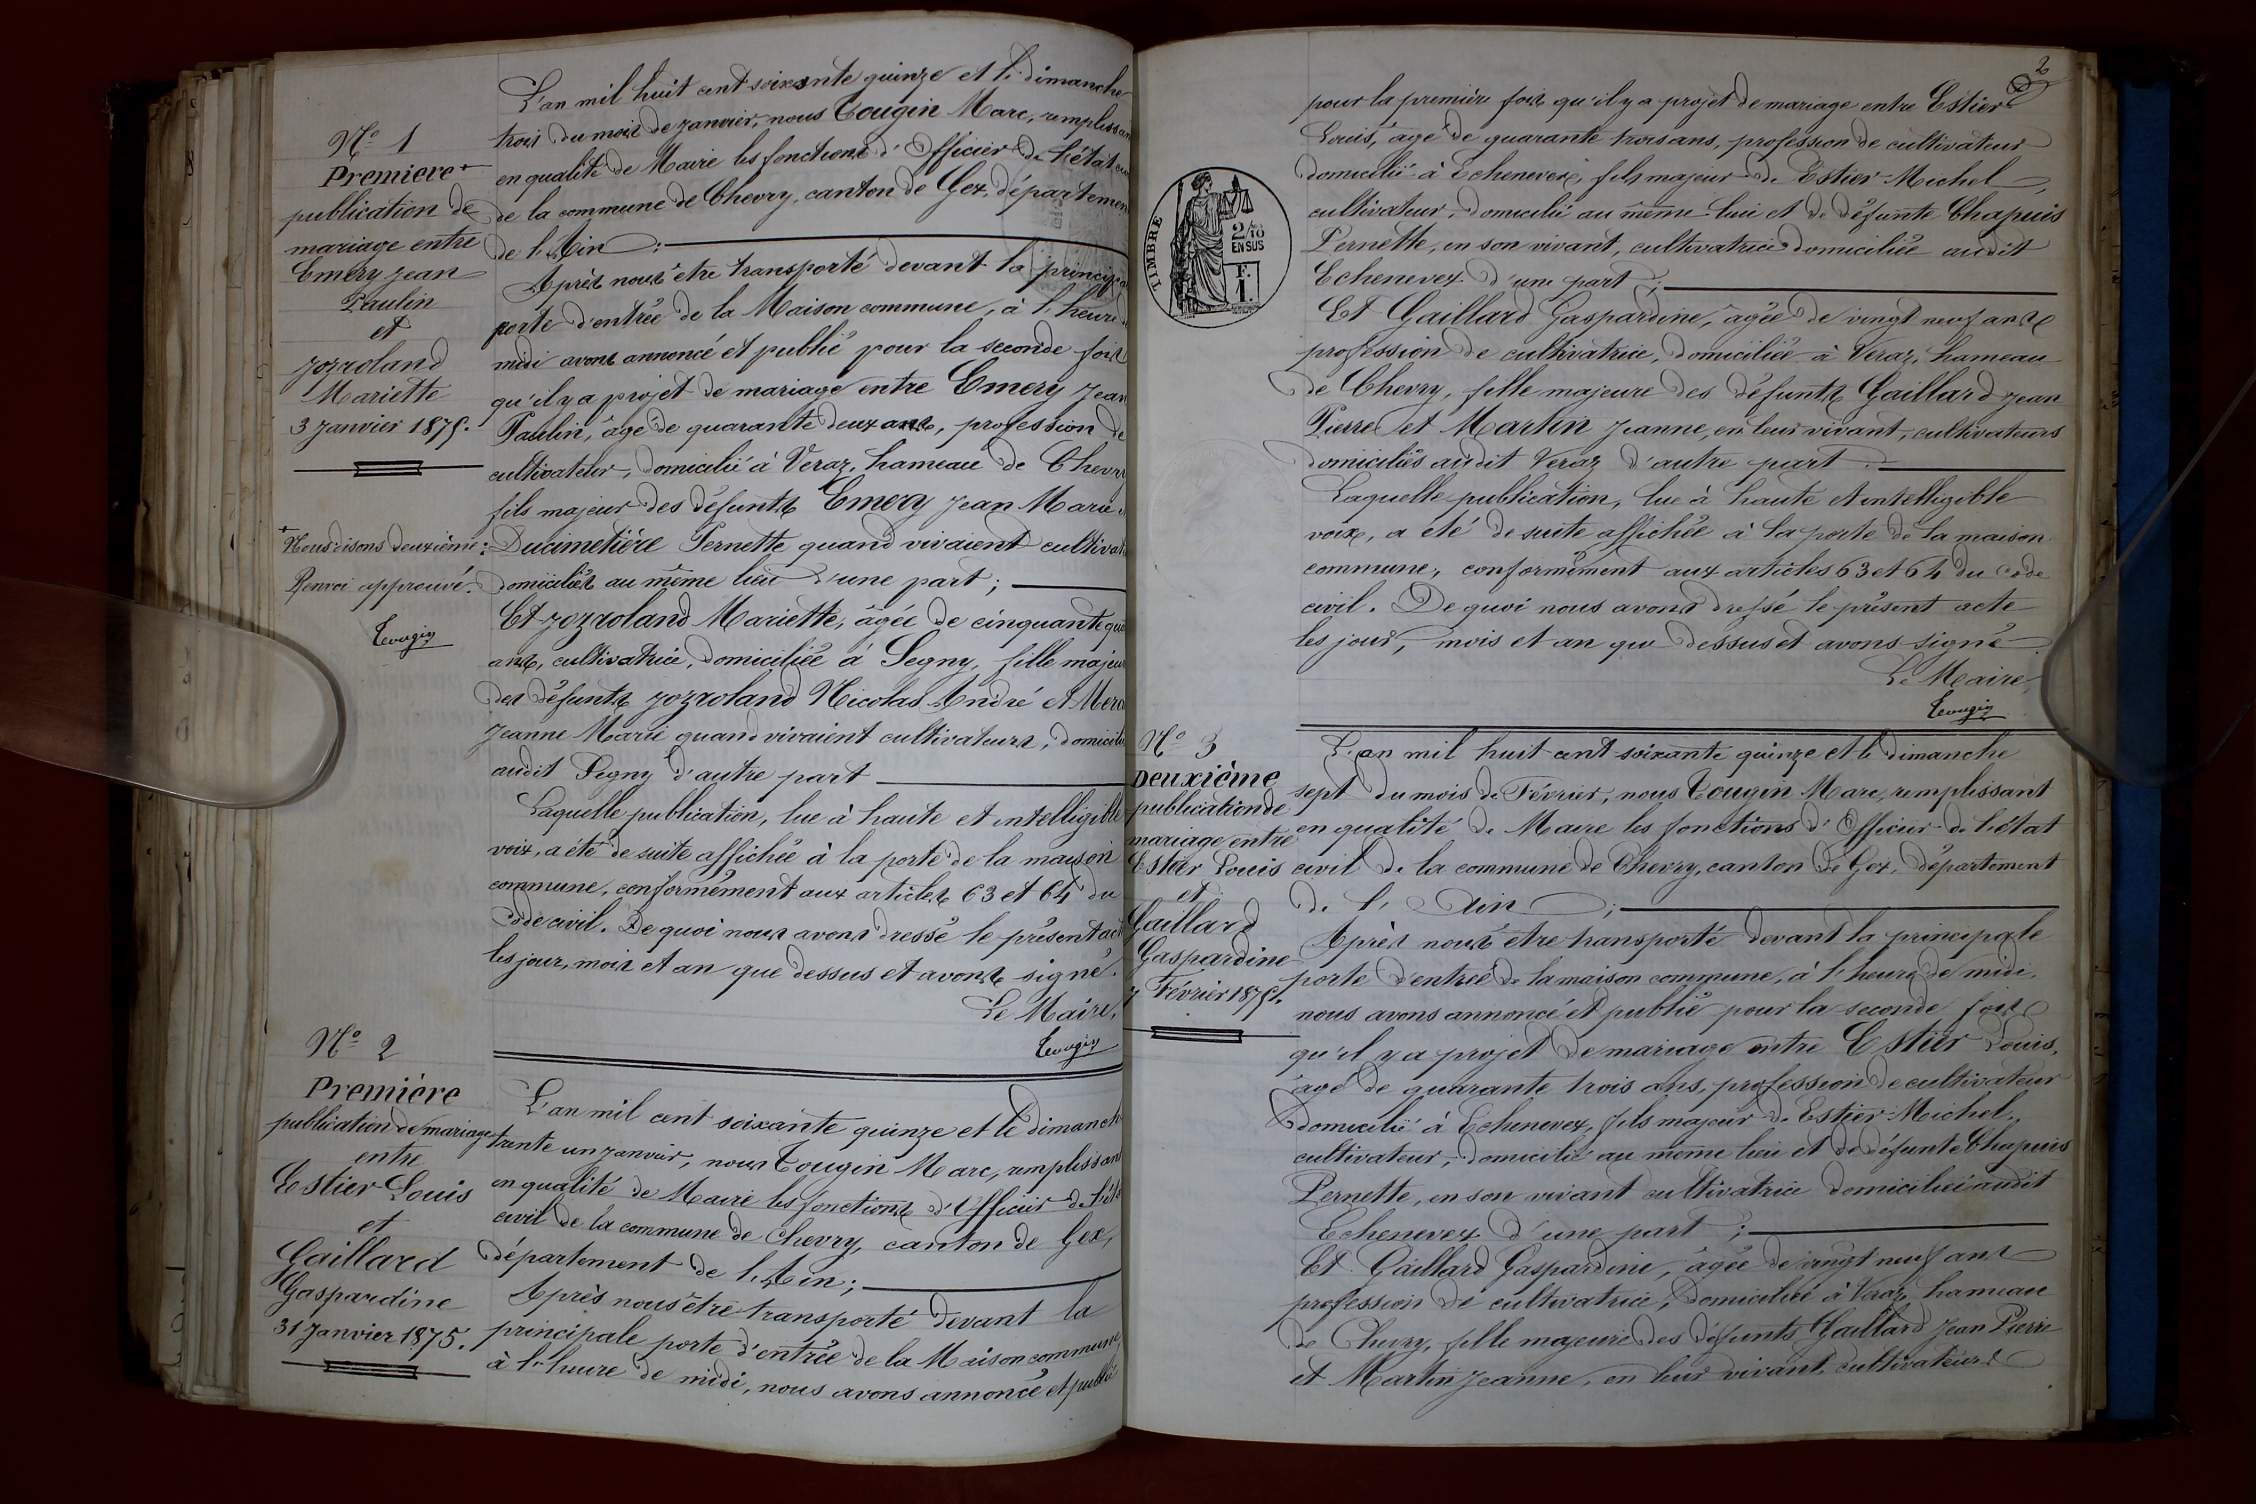 N° 1
Premiere+
publication de
mariage entre
Emery Jean
Paulin
et
Jozroland
Mariette
3 Janvier 1875.
+
Nous disons deuxième:
Renvoi approuvé.
Tougin
L'an mil huit cent soixante quinze et le dimanche
trois du mois de Janvier, nous Tougin Marc, remplissan
en qualité de Maire les fonctions d'Officier de l'état civ
de la commune de Chevry, canton de Gex, départemen
de l'Ain :
Après nous être transporté devant la principa
porte d'entrée de la Maison commune, à l'heure d
midi avons annoncé et publié pour la seconde fois
qu'il y a projet de mariage entre Emery Jean
Paulin, âgé de quarante deux ans, profession de
cultivateur, domicilié à Veraz, hameau de Chevry
fils majeur des défunts Emery Jean Marie e
Ducimetière Pernette quand vivaient cultivat
domiciliés au même lieu d'une part ;
Et Jozroland Mariette, âgée de cinquante qua
ans, cultivatrice, domiciliée à Segny, fille majeu
des défunts Jozroland Nicolas André et Merc
Jeanne Marie quand vivaient cultivateurs, domicili
audit Segny d'autre part
Laquelle publication, lue à haute et intelligible
voix, a été de suite affichée à la porte de la maison
commune, conformément aux articles 63 et 64 du
Code civil. De quoi nous avons dressé le présent act
les jour, mois et an que dessus et avons signé.
Le Maire,
Tougin
N° 2
Première
publication de mariage
entre
Estier Louis
et
Gaillard
Gaspardine
31 Janvier 1875.
L'an mil cent soixante quinze et le dimanche
trente un Janvier, nous Tougin Marc, remplissant
en qualité de Maire les fonctions d'Officier de l'éta
civil de la commune de Chevry, canton de Gex,
département de l'Ain ;
Après nous être transporté devant la
principale porte d'entrée de la Maison commune,
à l'heure de midi, nous avons annoncé et publié
2
pour la première fois qu'il y a projet de mariage entre Estier
Louis, âgé de quarante trois ans, profession de cultivateur
domicilié à Echenevex, fils majeur de Estier Michel,
cultivateur, domicilié au même lieu et de défunte Chapuis
Pernette, en son vivant, cultivatrice domiciliée audit
Echenevex d'une part ;
Et Gaillard Gaspardine, âgée de vingt neuf ans
profession de cultivatrice, domiciliée à Veraz, hameau
de Chevry, fille majeure des défunts Gaillard Jean
Pierre et Martin Jeanne, en leur vivant, cultivateurs
domiciliés audit Veraz d'autre part.
Laquelle publication, lue à haute et intelligible
voix, a été de suite affichée à la porte de la maison
commune, conformément aux articles 63 et 64 du code
civil. De quoi nous avons dressé le présent acte
les jour, mois et an que dessus et avons signé.
Le Maire,
Tougin
TIMBRE
2/10
EN SUS
F.
1.
N° 3
Deuxième
publication de
mariage entre
Estier Louis
et
Gaillard
Gaspardine
7 Février 1875.
L'an mil huit cent soixante quinze et le dimanche
sept du mois de Février, nous Tougin Marc, remplissant
en qualité de Maire les fonctions d'Officier de l'état
civil de la commune de Chevry, canton de Gex, département
de l'Ain ;
Après nous être transporté devant la principale
porte d'entrée de la maison commune, à l'heure de midi,
nous avons annoncé et publié pour la seconde fois
qu'il y a projet de mariage entre Estier Louis,
âgé de quarante trois ans, profession de cultivateur
domicilié à Echenevex, fils majeur de Estier Michel,
cultivateur, domicilié au même lieu et de défunte Chapuis
Pernette, en son vivant cultivatrice domiciliée audit
Echenevex d'une part ;
Et Gaillard Gaspardine, âgée de vingt neuf ans
profession de cultivatrice, domiciliée à Veraz, hameau
de Chevry, fille majeure des défunts Gaillard Jean Pierre
et Martin Jeanne, en leur vivant, cultivateurs